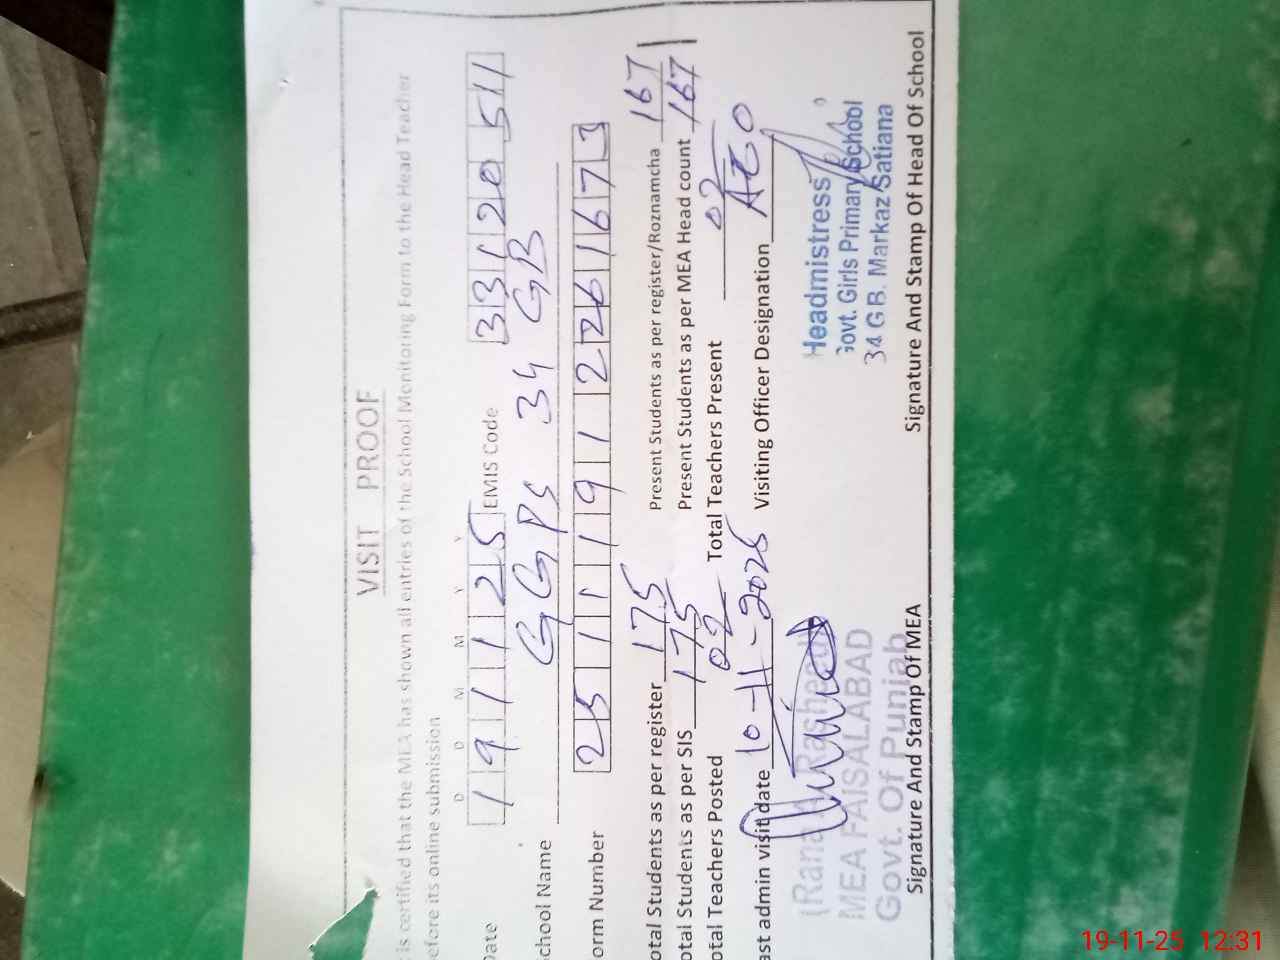 VISIT PROOF
is certified that the MEA has shown all entries of the School Monitoring Form to the Head Teacher
efore its online submission
D D M M Y Y
Date 191125 EMIS Code 33120511
chool Name GGPS 34 GB
orm Number 25111912261673
otal Students as per register 175 Present Students as per register/Roznamcha 167
otal Students as per SIS 175 Present Students as per MEA Head count 167
otal Teachers Posted 02 Total Teachers Present 02
ast admin visit date 10-11-2025 Visiting Officer Designation AEO
Rana A Rasheed
MEA FAISALABAD
Govt. Of Punjab
Headmistress
Govt. Girls Primary School
34 GB. Markaz Satiana
Signature And Stamp Of MEA Signature And Stamp Of Head Of School
19-11-25 12:31